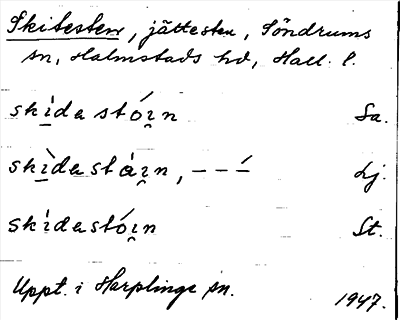 Skitesten, jättesten, Söndrums
sn, Halmstads hd, Hall. l.
skìdastói̯n Sa.
skìdastài̯n, – – –́ Lj.
skídastói̯n St.
Uppt. i Harplinge sn. 1947.